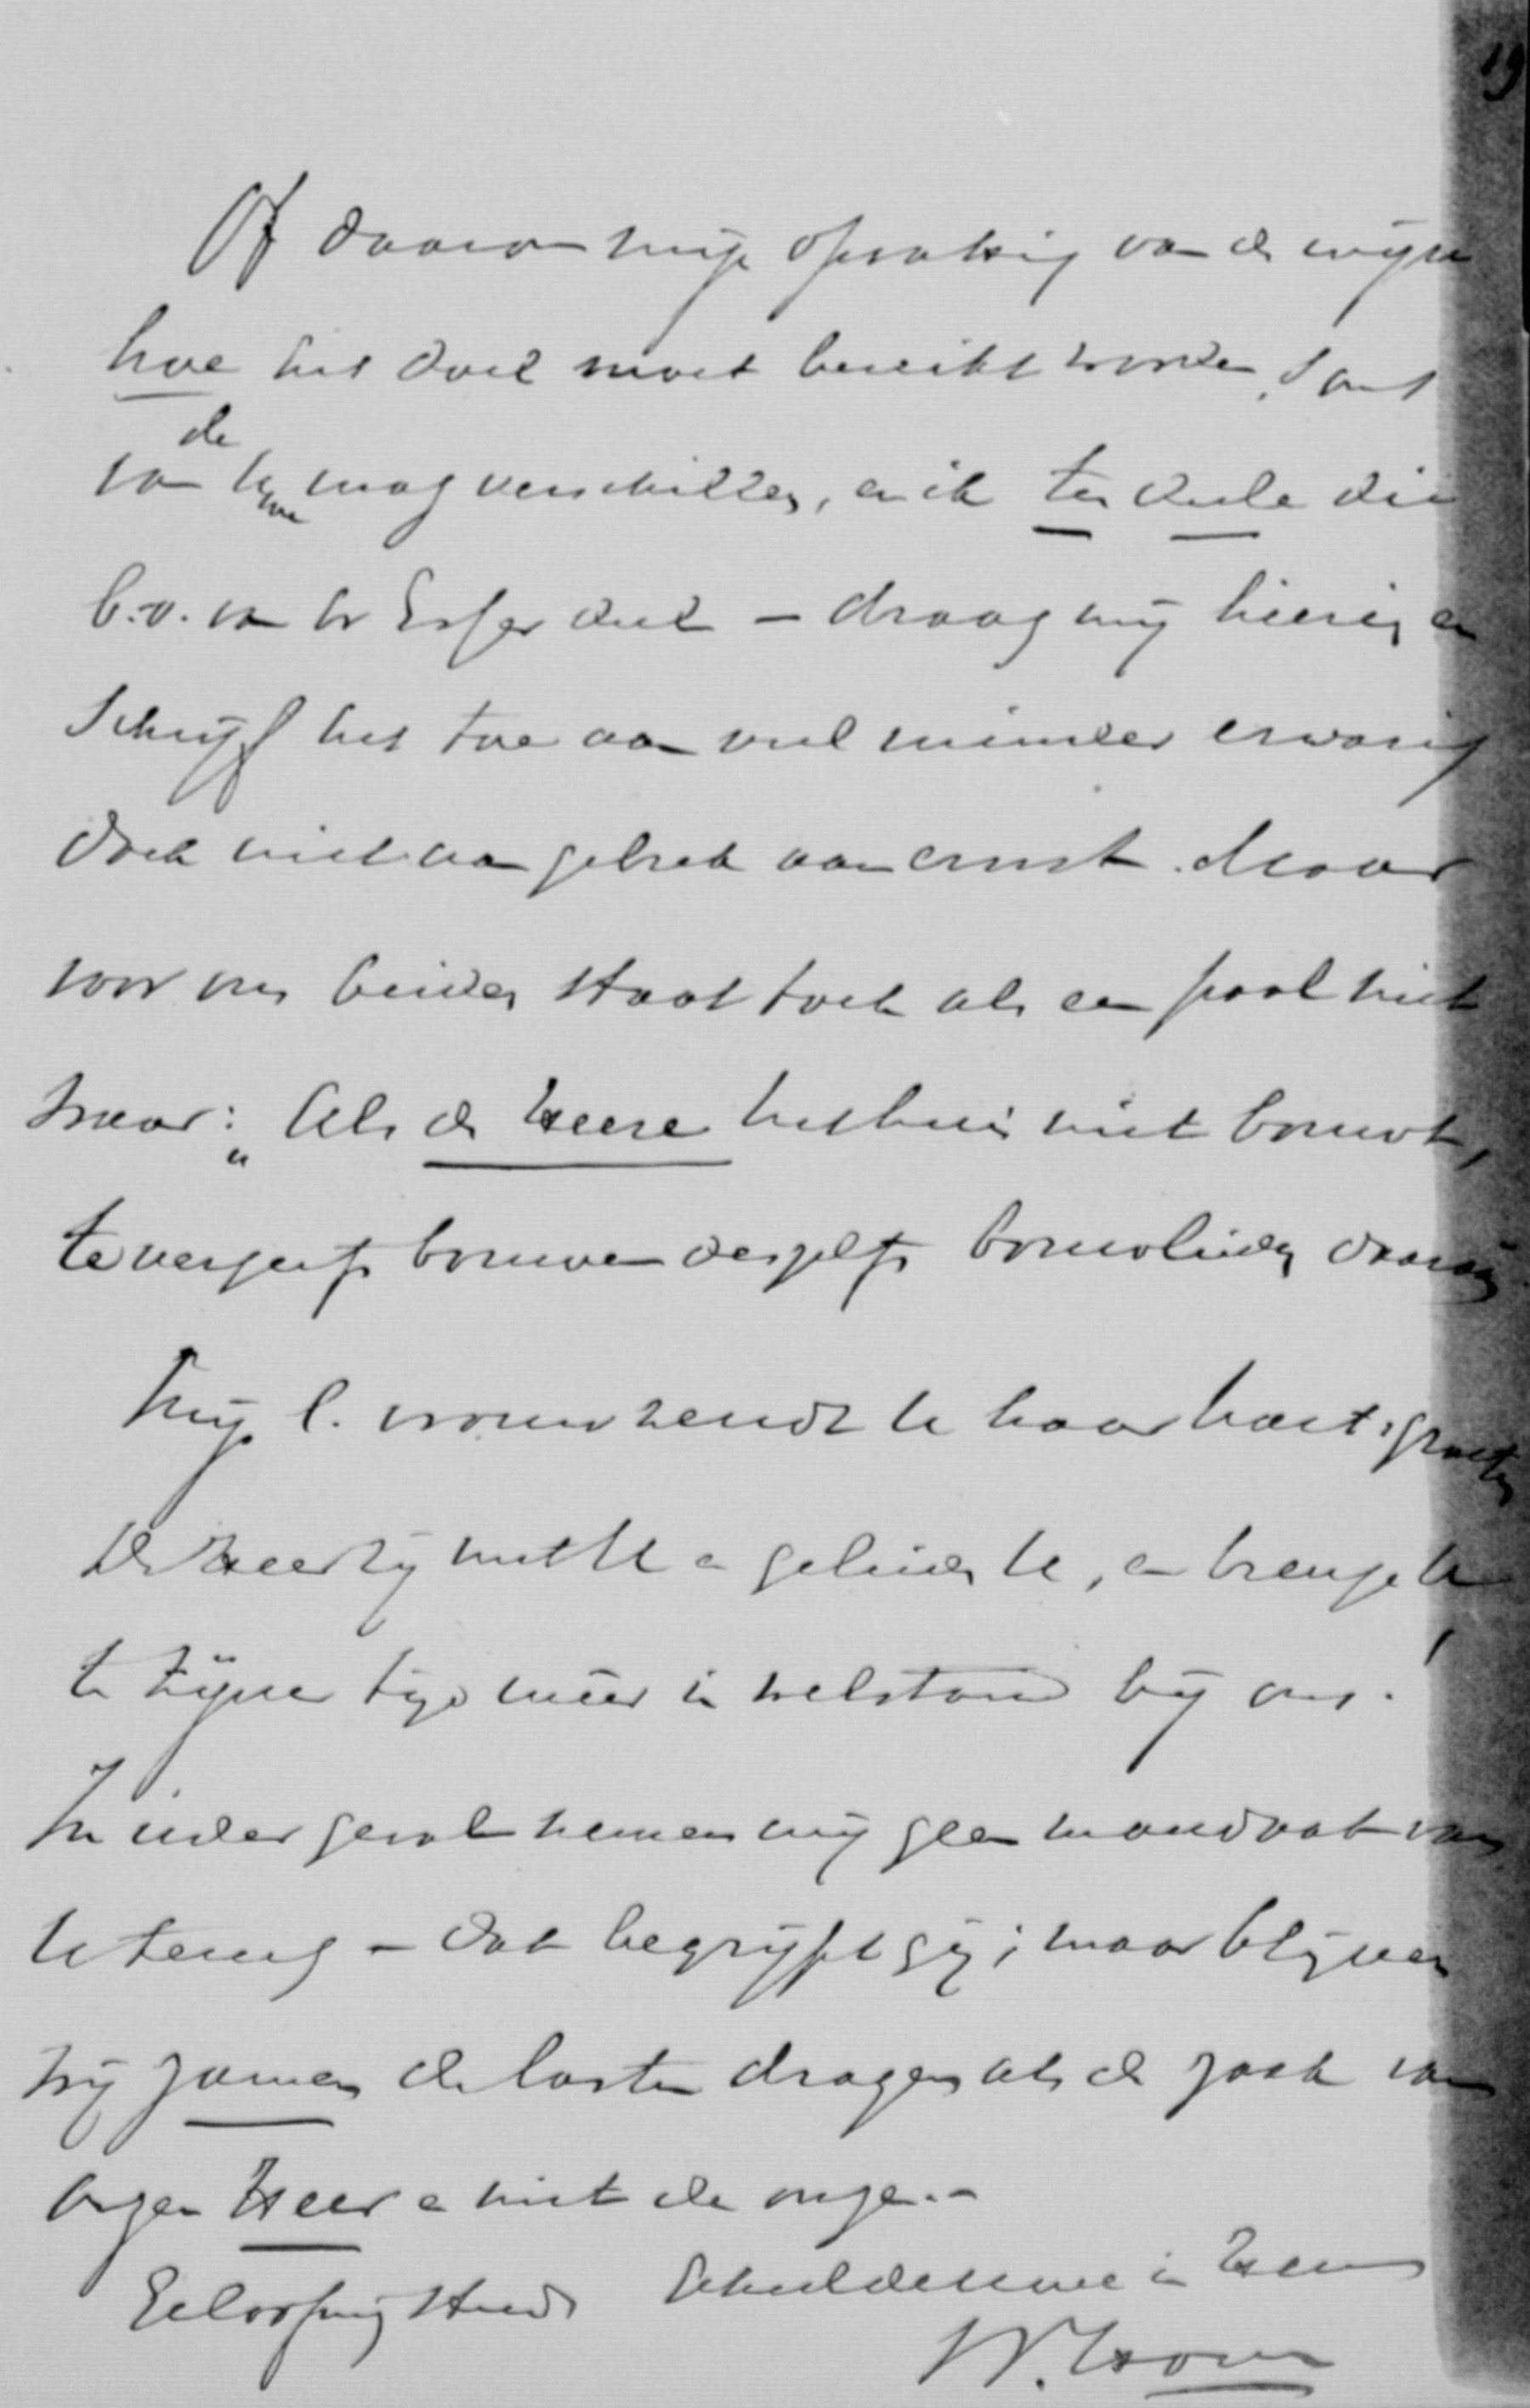 19
Of daarom mijn opvatting van de wijze
hoe het doel moet bereikt worden, soms
van de Uwe mag verschillen, en ik ten deele die
b.v. van br Esser deel – draag mij hierin en
Schrijf het toe aan veel minder ervaring
doch niet aan gebrek aan ernst. Maar
voor ons beiden staat toch als een paal het
waar: „Als de Heere het huis niet bouwt,
tevergeefs bouwen deszelfs bouwlieden daaraan
Mijn l. vrouw zendt U haar hart. groeten
De Heer zij met U en geleide U, en brenge U
te Zijner tijd weer in welstand bij ons!
In ieder geval nemen wij geen mandaat van
U terug – dat begrijpt gij; maar blijven
wij zamen de lasten dragen als de zaak van
onzen Heer en niet de onze. –
Geloof mij steeds Uw in Hem
W. Hoven